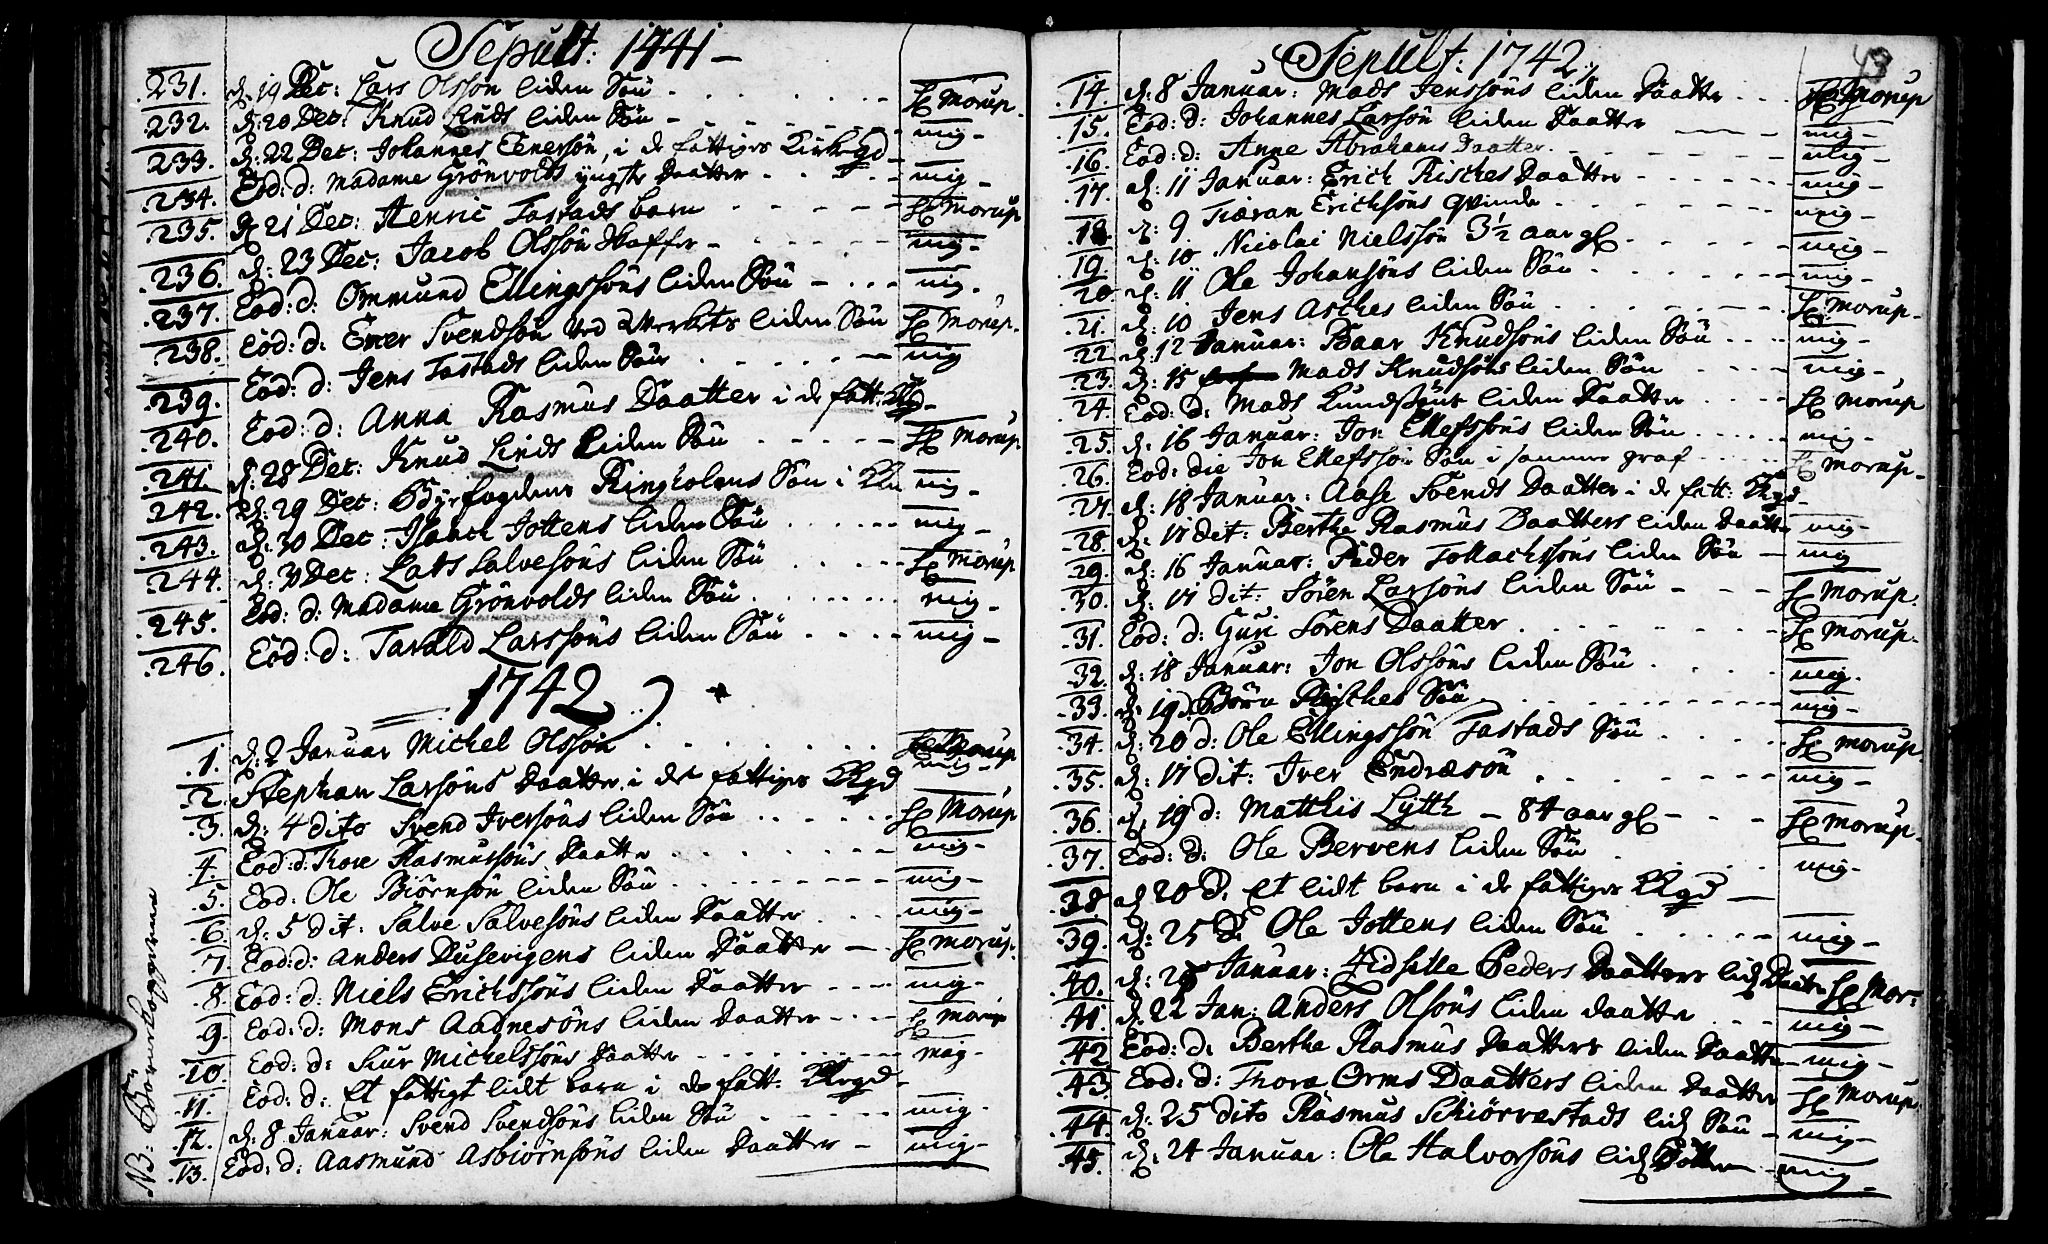 Sepult: 1741 –
231. d. 19 Dec: Lars Olssøn liden Søn . . . Hr Morup.
232. d: 20 Dec: Knud Linds liden Søn – . . . mig –
233. d: 22 Dec: Johannes Einerssøn, i de fattiges Kirkegd –
234. Eod: d: Madame Grönvolds yngste Daatter . . . mig –
235. d 21 Dec: Henric Tastads barn . . . Hr Morup
236. d: 23 Dec: Jacob Olssøn – . . . mig –
237. Eod: d: Ommund Ellingssøns liden Søn – . . . mig.
238. Eod: d: Einer Svendsøn ved Werkets liden Søn Hr Morup.
239. Eod: d: Jens Tastads liden Søn . . . mig
240. Eod: d: Anna Rasmus Daatter i de fatt: KGd –
241. d: 28 Dec: Knud Linds liden Søn . . . Hr Morup.
242. d: 29 Dec: Byefogdens Ringholms Søn i mig –
243. d: 30 Dec: Isaach Jottens liden Søn . . . mig –
244. d: 30 Dec: Lars Salvesøns liden Søn . . . Hr Morup
245. Eod: d: Madame Grönvolds liden Søn . . . mig –
246. Eod: d: Tarald Larssøns liden Søn . . . mig –
1742
1. d: 2 Januar Michel Olssøn . . . mig –
2. Stephan Larsøns Daatter i de fattiges KKgd
3. d: 4 dito Svend Iversøns liden Søn . . . Hr Morup
4. Eod: d. Thore Rasmussøns Daatter . . . mig –
5. Eod: Ole Biørnsøn liden Søn . . . mig –
6. d: 5 dit: Salve Salvesøns liden Daatter . . . mig –
7. Eod: d: Anders Dusevigens liden Daatter – . Hr Morup.
8. Eod: d: Niels Erichssøns liden Daatter . . . mig –
9. Eod: d: Mons Aadnesøns liden Daatter – . . . Hr Morup
10. Eod: d: Siur Michelssøns Daatter . . . mig –
11. Eod: d: Et fattigt lidt barn i de fatt: KKrgd –
12. d: 8 Januar: Svend Svendsøns liden Søn . . . mig.
13. Eod: d: Aasmund Asbiørnsøns liden Daatter – mig –
NB:
Sepult: 1742.
49
14. d: 8 Januar: Mads Jenssøns liden Daatter . . . Hr Morup
15. Eod: d: Johannes Larsøn liden Daatter – mig –
16. Eod: d: Anne Abrahams Daatter. – mig –
17. d: 11 Januar: Erich Risches Daatter . . . mig –
18. d: 9 Tiæran Ericksøns Qvinde . . . mig –
19. d: 10 Nicolai Nielssøn 3½ aar gl . . . mig –
20 d: 11 Ole Johansøns liden Søn . . . mig –
21. d: 10 Jens Asches liden Søn . . . Hr Morup.
22 d: 12 Januar: Baar Knudsøns liden Søn . . . mig –
23. d: 15 Mads Knudsøns liden Søn . . . mig –
24. Eod: d: Mads liden Daatter . . . Hr Morup
25. d: 16 Januar: Jon Ellefssøns liden Søn . . . mig –
26. Eod: die Jon Ellefssøn Søn i samme graf . . . Hr Morup.
27. d: 18 Januar: Aase Svends Daatter i de fatt: KKgd –
28. d: 17 dit: Berthe Rasmus Daatters liden Daatter mig –
29. d: 16 Januar: Peder Tollachssøns liden Søn – mig
30. d: 17 dit: Søren Larsøns liden Søn – Hr Morup.
31. Eod: d: Guri Sørens Daatter . . . Hr Morup.
32. d: 18 Januar: Jon Olssøns liden Søn . . . mig.
33. d: 19 d: Børn Risches Søn . . . mig –
34. d: 20 d: Ole Ellingssøn Tastads Søn . . . Hr Morup.
35. d: 17 dit: Iver Endresøn . . . mig –
36. d: 19 d: Matthis Lÿtth – 84 aar gl – . . Hr Morup.
37. Eod: d: Ole Bervens liden Søn . . . mig –
38 d 20 d. et lidt barn i de fattiges KKgd –
39. d: 25 d. Ole Jottens liden Søn . . . mig –
40. d: Januar: Zidselle Peders Daatters lid Daatr – Hr Mor:
41. d: 22 Jan: Anders Olsøns liden Daatter . . . mig –
42 Eod: d: Berthe Rasmus Daatters liden Daatter mig –
43. Eod: d: Thora Orms Daatters liden Daatter Hr Morup.
44. d: 25 dito Rasmus Schiørvestads lid Søn – mig –
45. d: 24 Januar: Ole Halvorsøns lid Datter – mig –